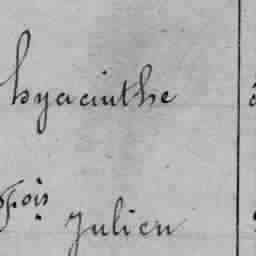 hyacinthe
fçois Julien